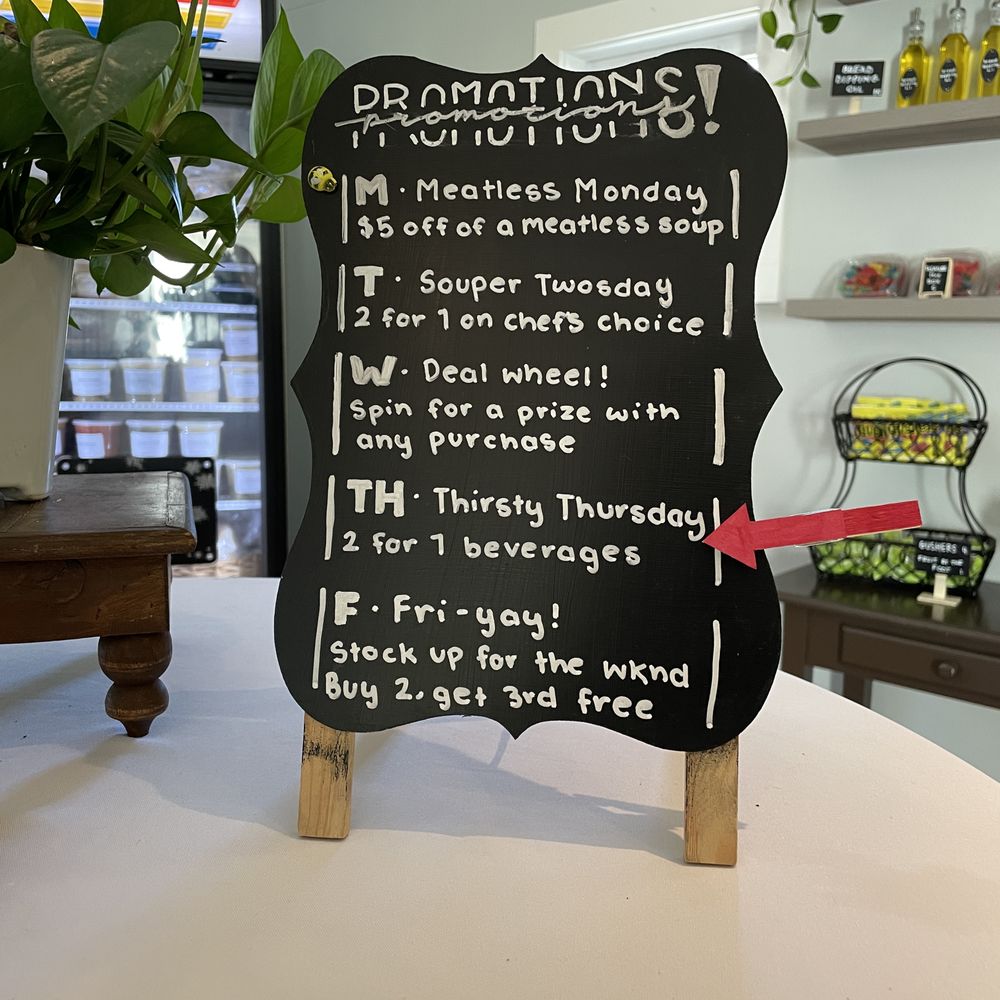 PROMOTIONS!
promotions
M · Meatless Monday
$5 off of a meatless soup
T · Souper Twosday
2 for 1 on chef's choice
W · Deal wheel!
Spin for a prize with
any purchase
TH · Thirsty Thursday
2 for 1 beverages
F · Fri-yay!
Stock up for the wknd
Buy 2, get 3rd free
BREAD
DIPPING
OIL
GUSHERS
FRUIT BY THE
FOOT